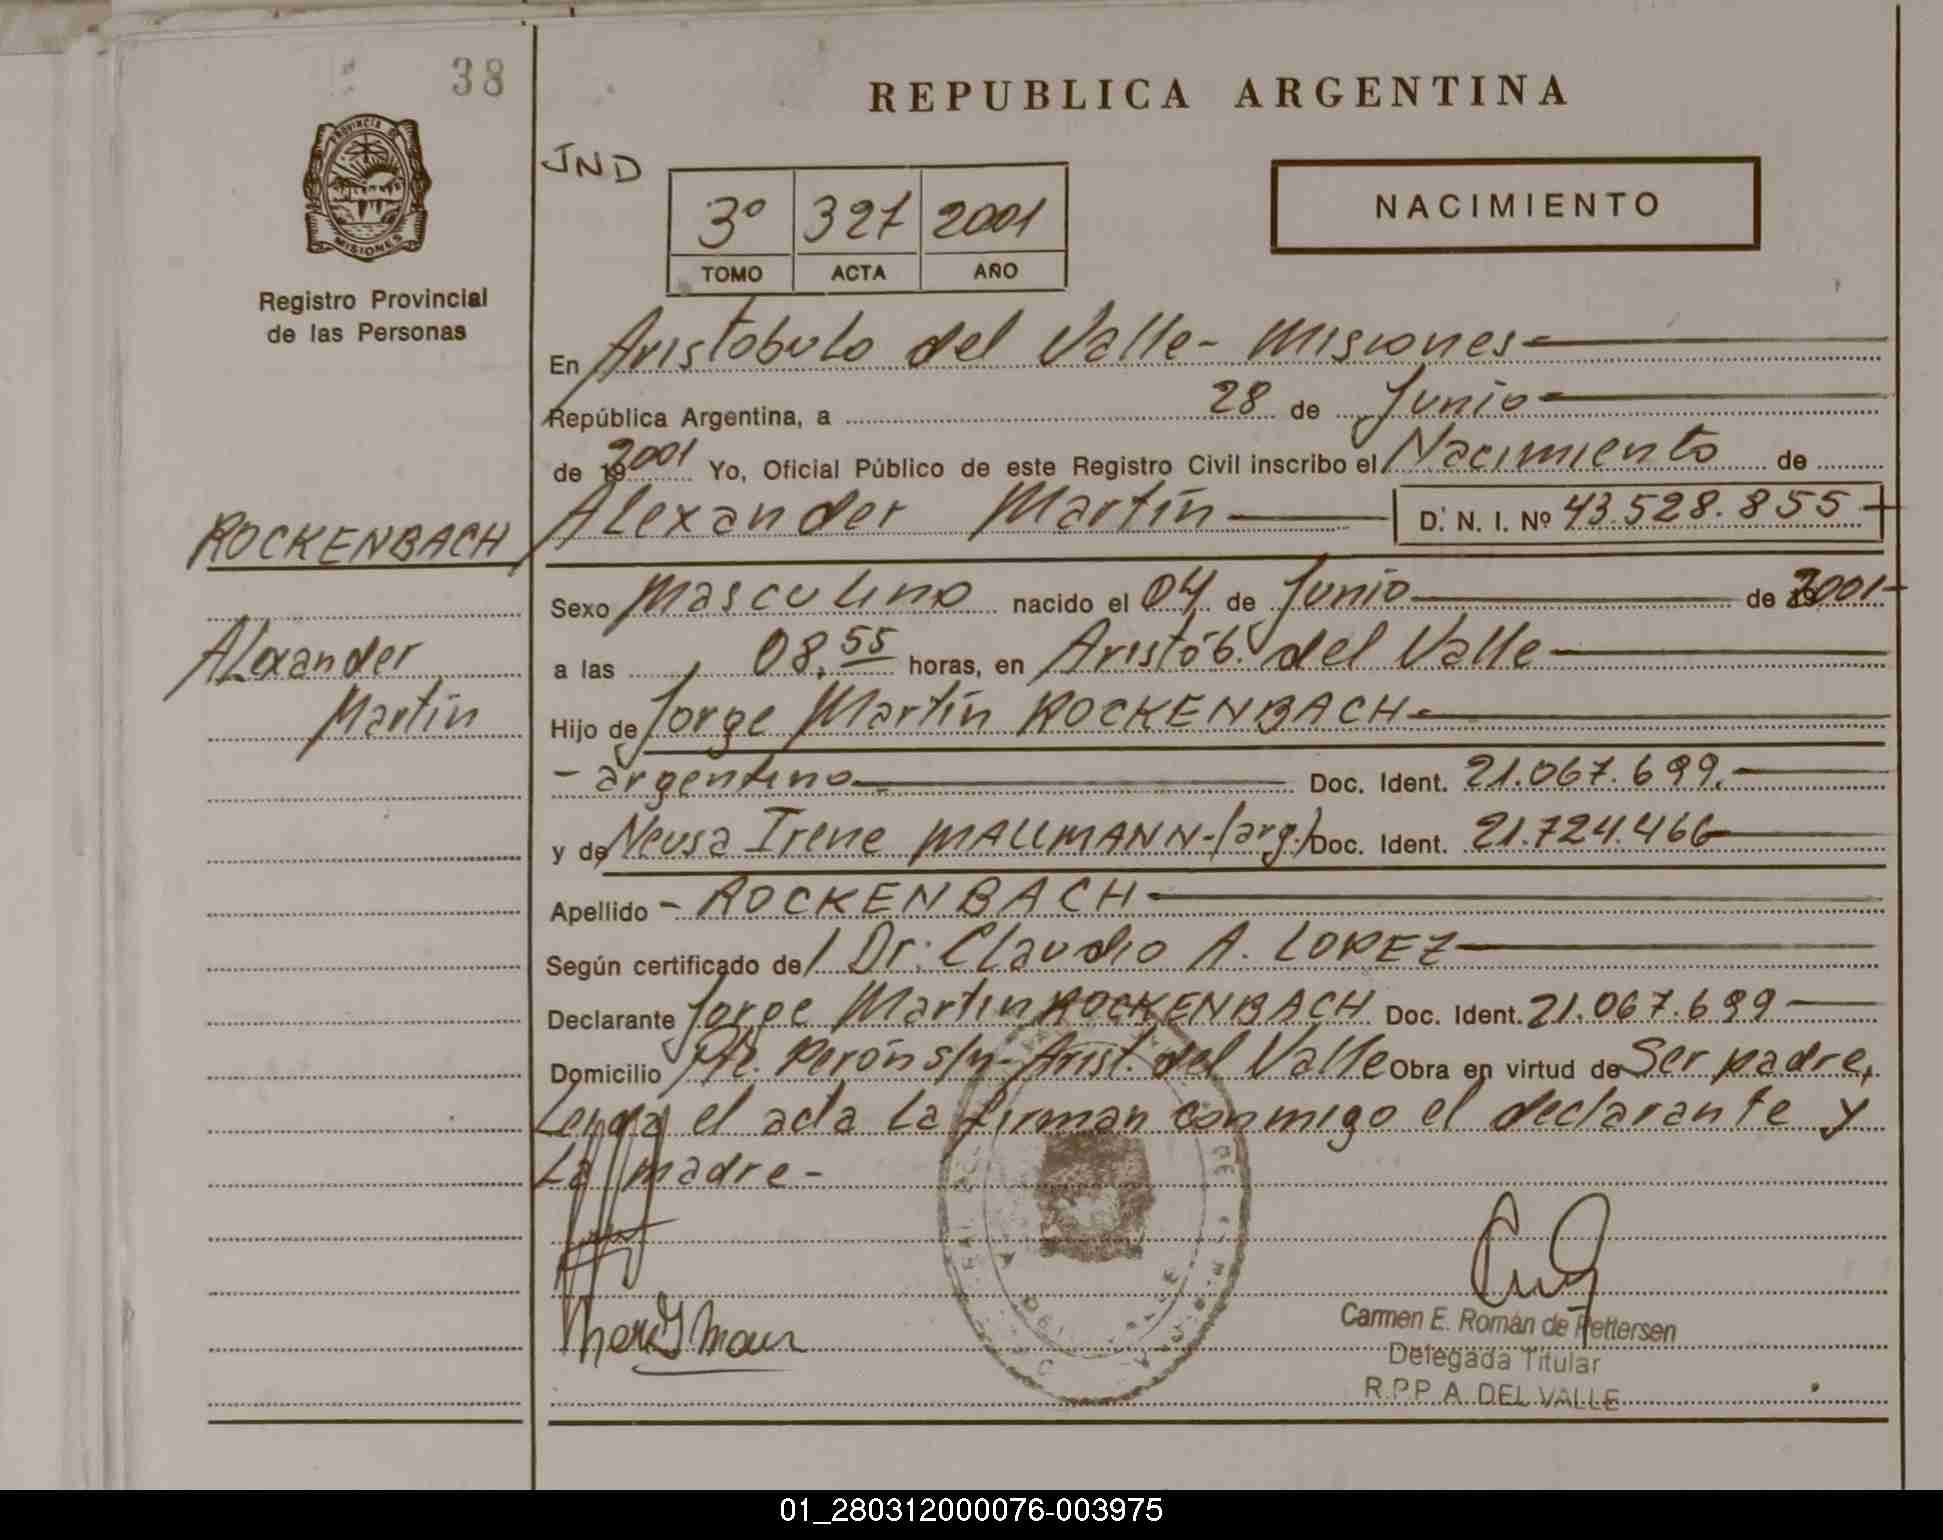 38
REPUBLICA ARGENTINA
PROVINCIA DE
MISIONES
Registro Provincial
de las Personas
JND
3º 327 2001
TOMO ACTA AÑO
NACIMIENTO
En Aristóbulo del Valle - Misiones
República Argentina, a 28 de Junio
de 2001 Yo, Oficial Público de este Registro Civil inscribo el Nacimiento de
Alexander Martín D. N. I. Nº 43.528.855
ROCKENBACH
Sexo Masculino nacido el 04 de Junio de 2001-
Alexander
a las 08,55 horas, en Aristób. del Valle
Martín
Hijo de Jorge Martín ROCKENBACH-
- argentino Doc. Ident. 21.067.699.
y de Neusa Irene MALLMANN-(arg.) Doc. Ident. 21.724.466
Apellido - ROCKENBACH
Según certificado del Dr: Claudio A. LOPEZ
Declarante Jorge Martin ROCKENBACH Doc. Ident. 21.067.699
Domicilio Pte. Perón s/n - Arist. del Valle Obra en virtud de Ser padre,
Leída el acta la firman conmigo el declarante y
La madre -
Carmen E. Román de Pettersen
Delegada Titular
R.P.P. A. DEL VALLE
01_280312000076-003975